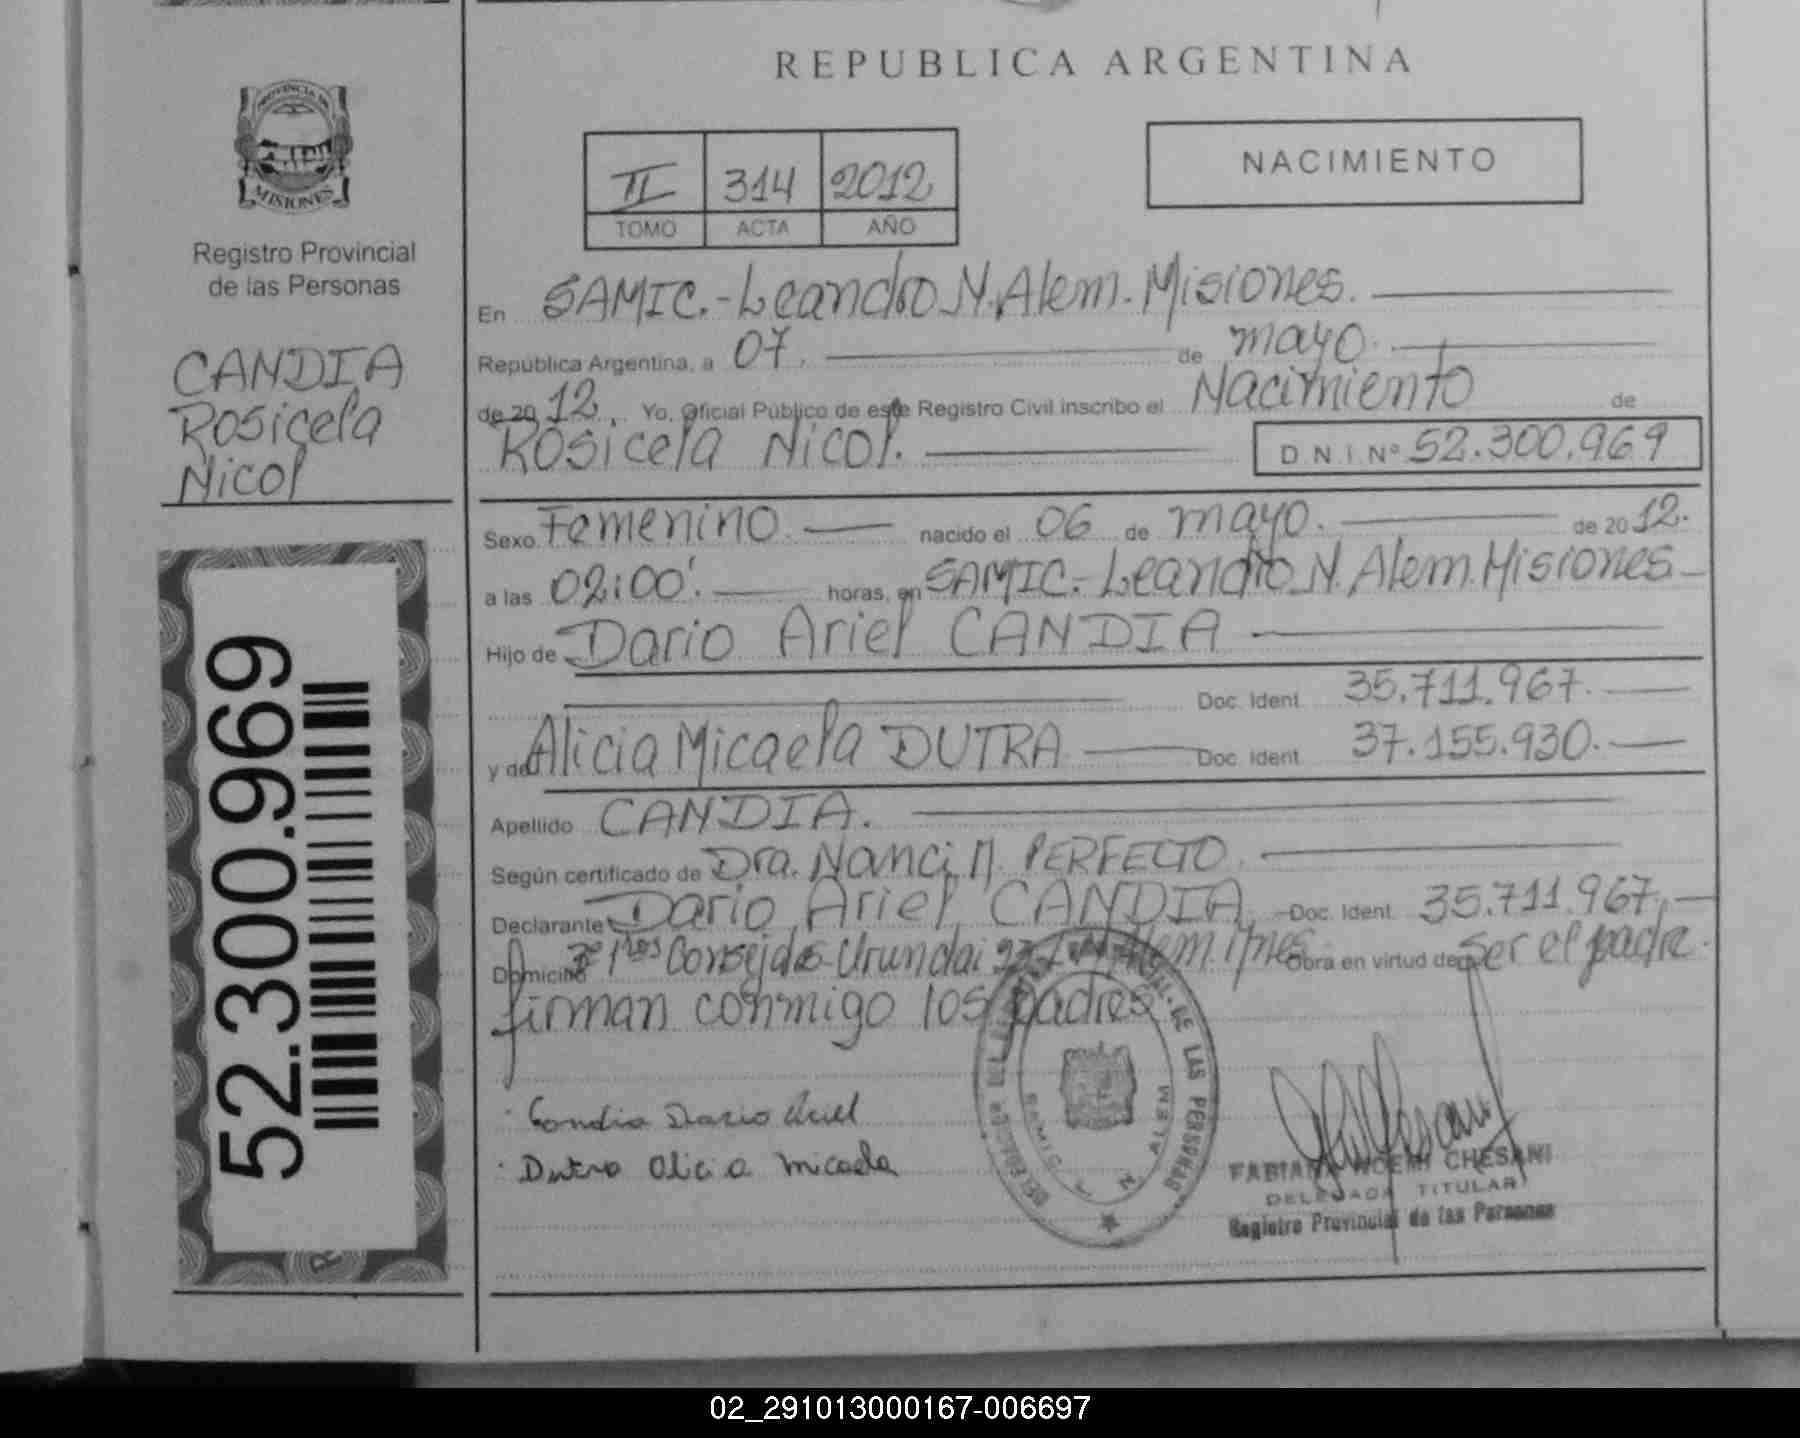 REPUBLICA ARGENTINA
PROVINCIA DE
MISIONES
Registro Provincial
de las Personas
CANDIA
Rosicela
Nicol
52.300.969
II 314 2012
TOMO ACTA AÑO
NACIMIENTO
En SAMIC.-Leandro N. Alem. Misiones.
República Argentina, a 07. de mayo.
de 20 12. Yo, Oficial Público de este Registro Civil inscribo el Nacimiento de
Rosicela Nicol. D.N.I. Nº 52.300.969
Sexo Femenino. nacido el 06 de mayo. de 20 12.
a las 02:00'. horas, en SAMIC.-Leandro N. Alem. Misiones
Hijo de Dario Ariel CANDIA
Doc. Ident. 35.711.967.
y de Alicia Micaela DUTRA Doc. Ident. 37.155.930.
Apellido CANDIA.
Según certificado de Dra. Nanci PERFECTO.
Declarante Dario Ariel CANDIA Doc. Ident. 35.711.967.
Domicilio Urundai Alem. Obra en virtud de ser el padre.
firman conmigo los padres
Candia Dario Ariel
Dutra Alicia Micaela
DE LAS PERSONAS
SAMIC L N ALEM
FABIANA NOEMI CHESANI
DELEGADA TITULAR
Registro Provincial de las Personas
02_291013000167-006697